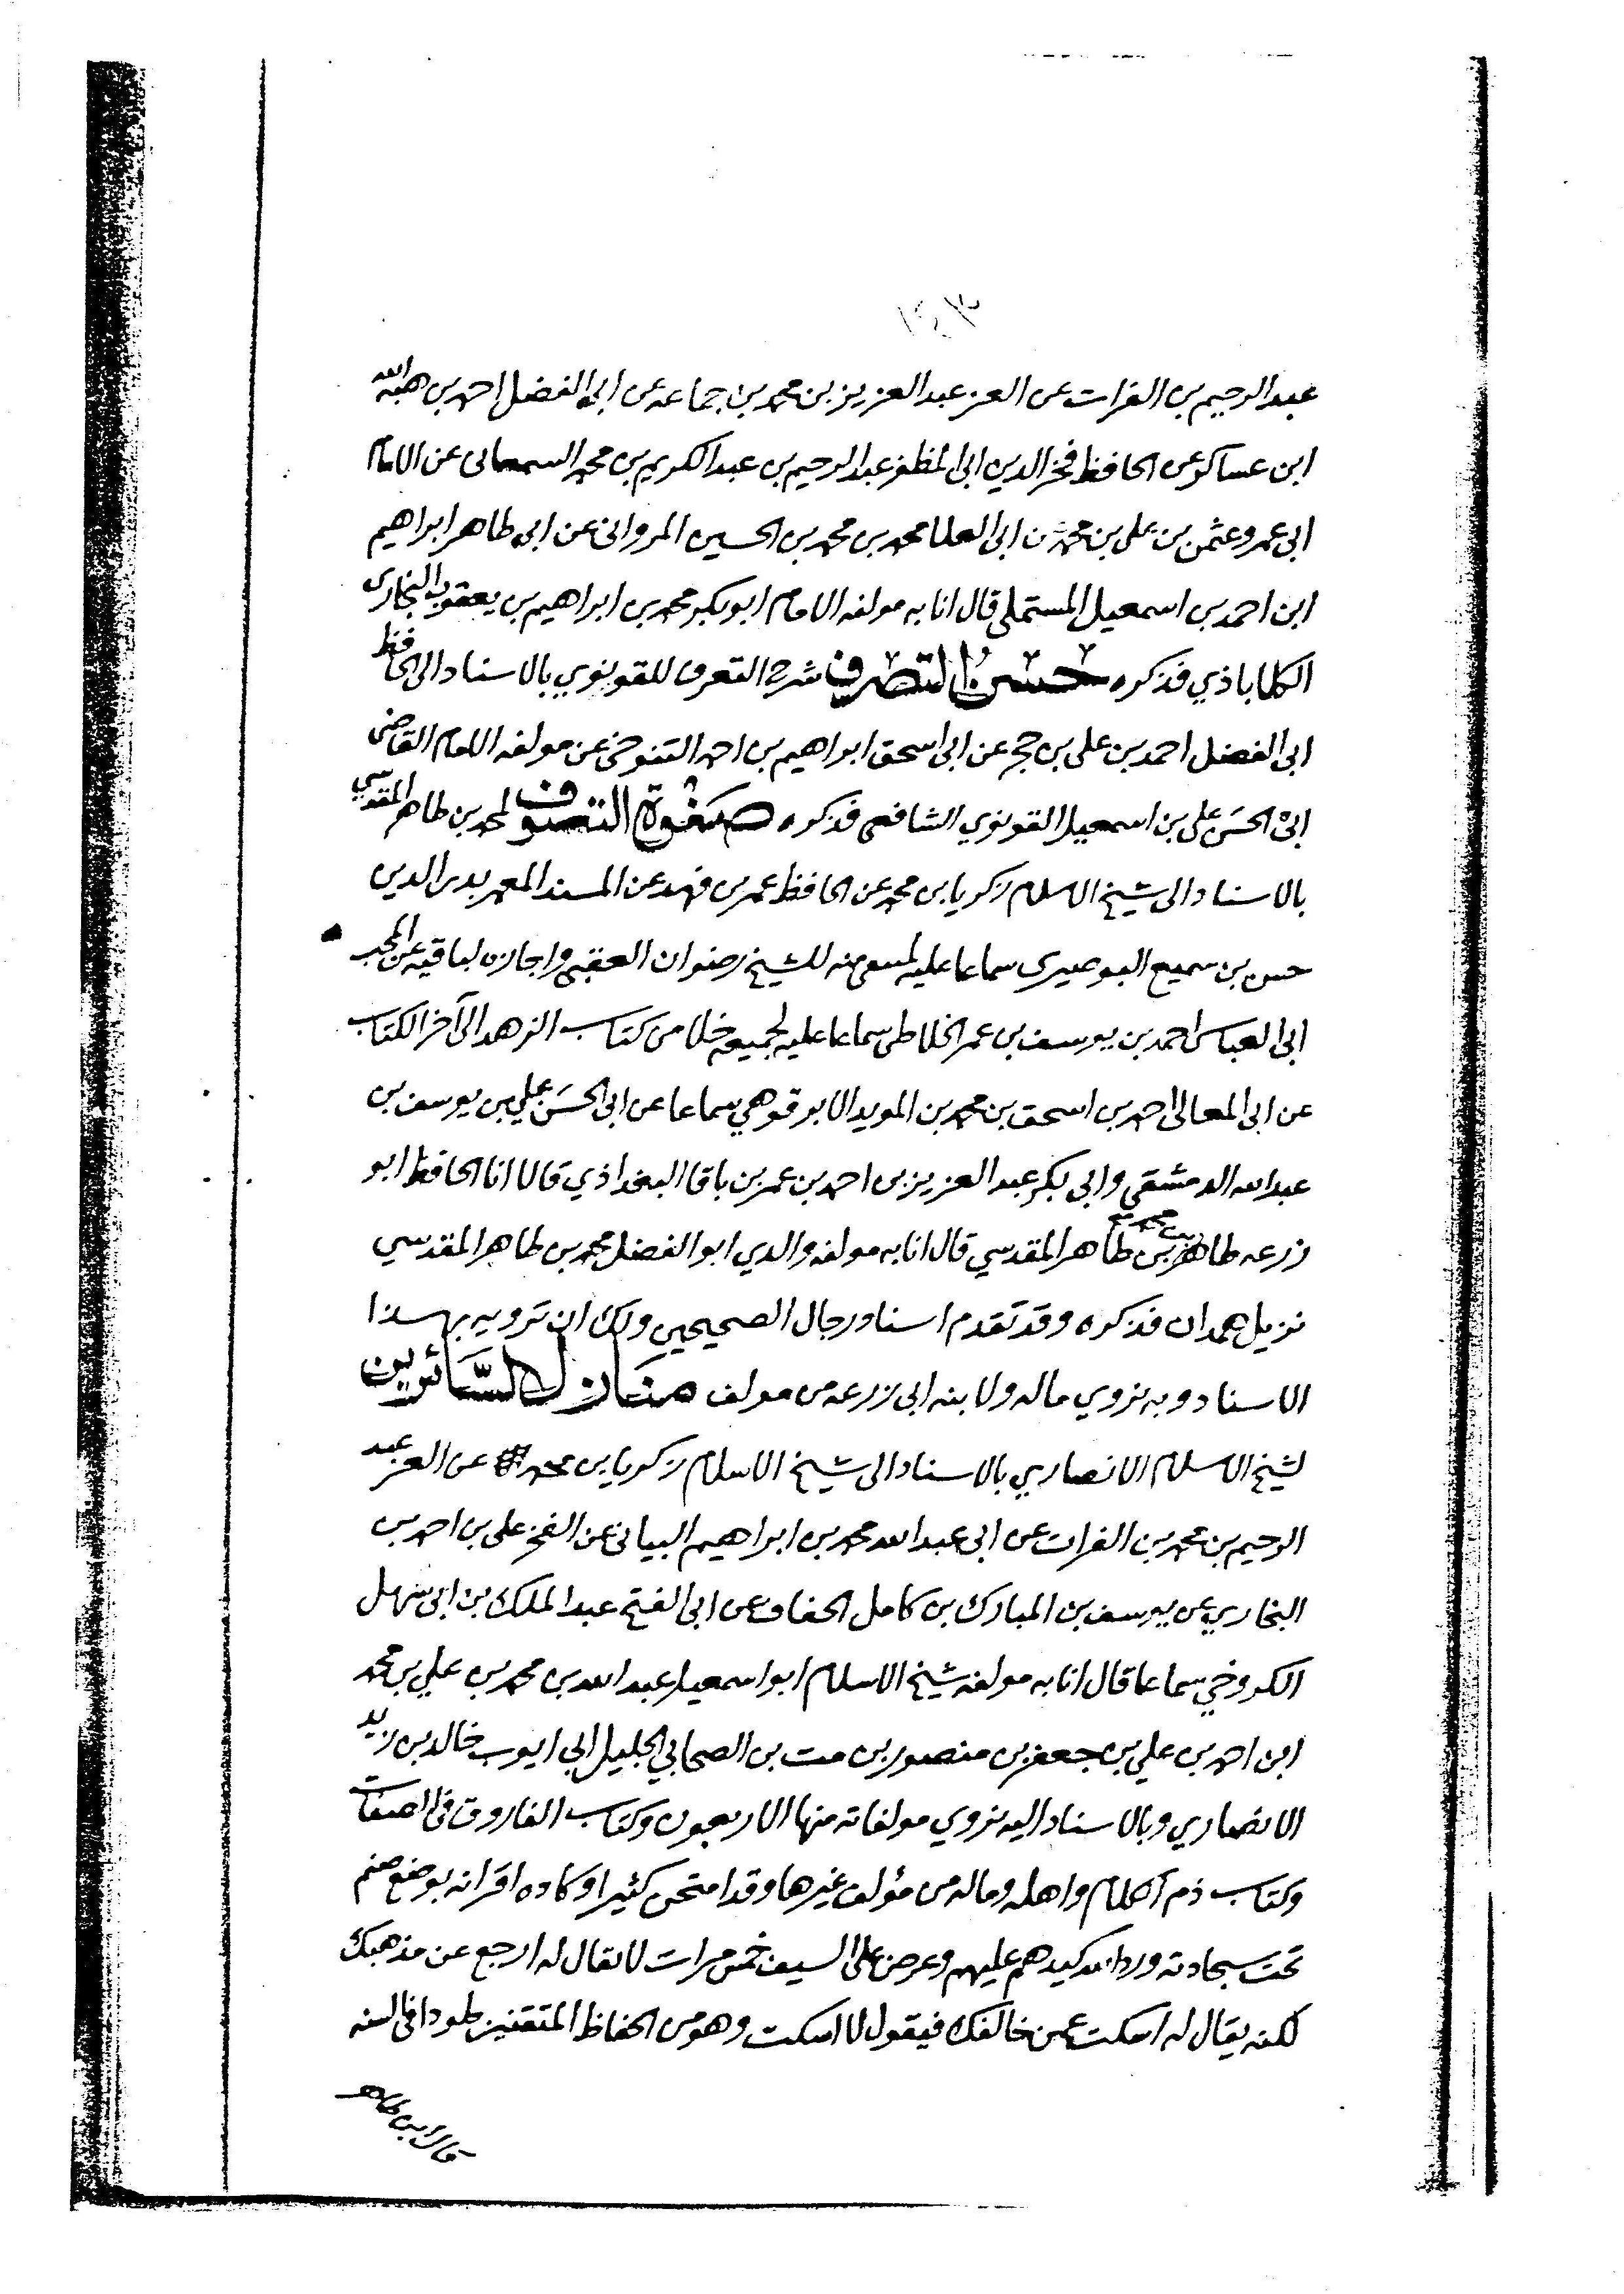 ١٤٣
عبد الرحيم بن الفرات عن العز عبد العزيز بن محمد بن جماعه عن ابي الفضل احمد بن هبة الله
ابن عساكر عن الحافظ فخر الدين ابى المظفر عبد الرحيم بن عبد الكريم بن محمد السمعانى عن الامام
ابى عمرو عثمن بن على بن محمد بن ابى العلا محمد بن محمد بن الحسين المروانى عن ابى طاهر ابراهيم
ابن احمد بن اسمعيل المستملى قال انا به مولفه الامام ابو بكر محمد بن ابراهيم بن يعقوب البخارى
الكلاباذي فذكره حسن التصرف شرح التعرف للقونوي بالاسناد الى الحافظ
ابى الفضل احمد بن على بن حجر عن ابى اسحق ابراهيم بن احمد التنوخى عن مولفه الامام القاضى
ابى الحسن على بن اسمعيل القونوي الشافعى فذكره صفوة التصوف لمحمد بن طاهر المقدسي
بالاسناد الى شيخ الاسلام زكريا بن محمد عن الحافظ عمر بن فهد عن المسند المعمر بدر الدين
حسن بن سميع البوصيرى سماعا عليه لبعض منه للشيخ رضوان العقبى واجازه لباقيه عن المحب
ابى العباس احمد بن يوسف بن عمر الخلاطى سماعا عليه لجميعه خلا من كتاب الزهد الى آخر الكتاب
عن ابى المعالى احمد بن اسحق بن محمد بن المويد الابرقوهي سماعا عن ابى الحسن علي بن يوسف بن
عبد الله الدمشقي وابى بكر عبد العزيز بن احمد بن عمر بن باقا البغداذي قالا انا الحافظ ابو
زرعه طاهر بن محمد بن طاهر المقدسي قال انا به مولفه والدي ابو الفضل محمد بن طاهر المقدسي
نزيل همدان فذكره وقد تقدم اسناد رجال الصحيحين ولك ان ترويه بهذا
الاسناد وبه نروي ماله ولابنه ابى زرعه من مولف منازل السائرين
لشيخ الاسلام الانصاري بالاسناد الى شيخ الاسلام زكريا بن محمد عن العز عبد
الرحيم بن محمد بن الفرات عن ابى عبد الله محمد بن ابراهيم البيانى عن الفخر على بن احمد بن
البخاري عن يوسف بن المبارك بن كامل الخفاف عن ابى الفتح عبد الملك بن ابى سهل
الكروخي سماعا قال انا به مولفه شيخ الاسلام ابو اسمعيل عبد الله بن محمد بن علي بن محمد
ابن احمد بن علي بن جعفر بن منصور بن مت بن الصحابي الجليل ابي ايوب خالد بن زيد
الانصاري وبالاسناد اليه نروي مولفاته منها الاربعون وكتاب الفاروق فى الصفات
وكتاب ذم الكلام واهله وماله من مؤلف غيرها وقد امتحن كثيرا وكاده اقرانه بوضع صنم
تحت سجادته ورد الله كيدهم عليهم وعرض على السيف خمس مرات لا يقال له ارجع عن مذهبك
لكنه يقال له اسكت عمن خالفك فيقول لا اسكت وهو من الحفاظ المتقنين طودا فى السنه
قال ابن طاهر